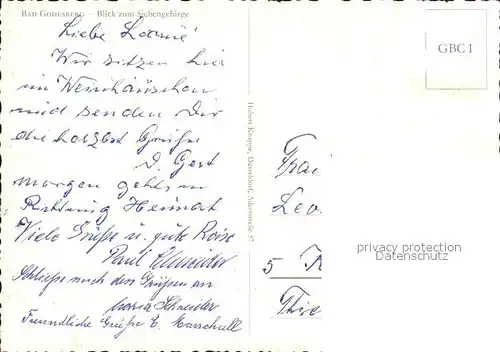 Bad Godesberg – Blick zum Siebengebirge
Liebe
Wir sitzen hier
im Weinhäuschen
und senden Dir
die herzlst Grüße
D. Gert
morgen gehts in
Richtung Heimat
Viele Grüße u. gute Reise
Paul Schneider
Schließe mich den Grüßen an
Maria Schneider
Freundliche Grüße E. Marschall
Hubert Knuppe, Düsseldorf, Adersstraße 37
GBC 1
Frau
Leo.
privacy protection
Datenschutz
5